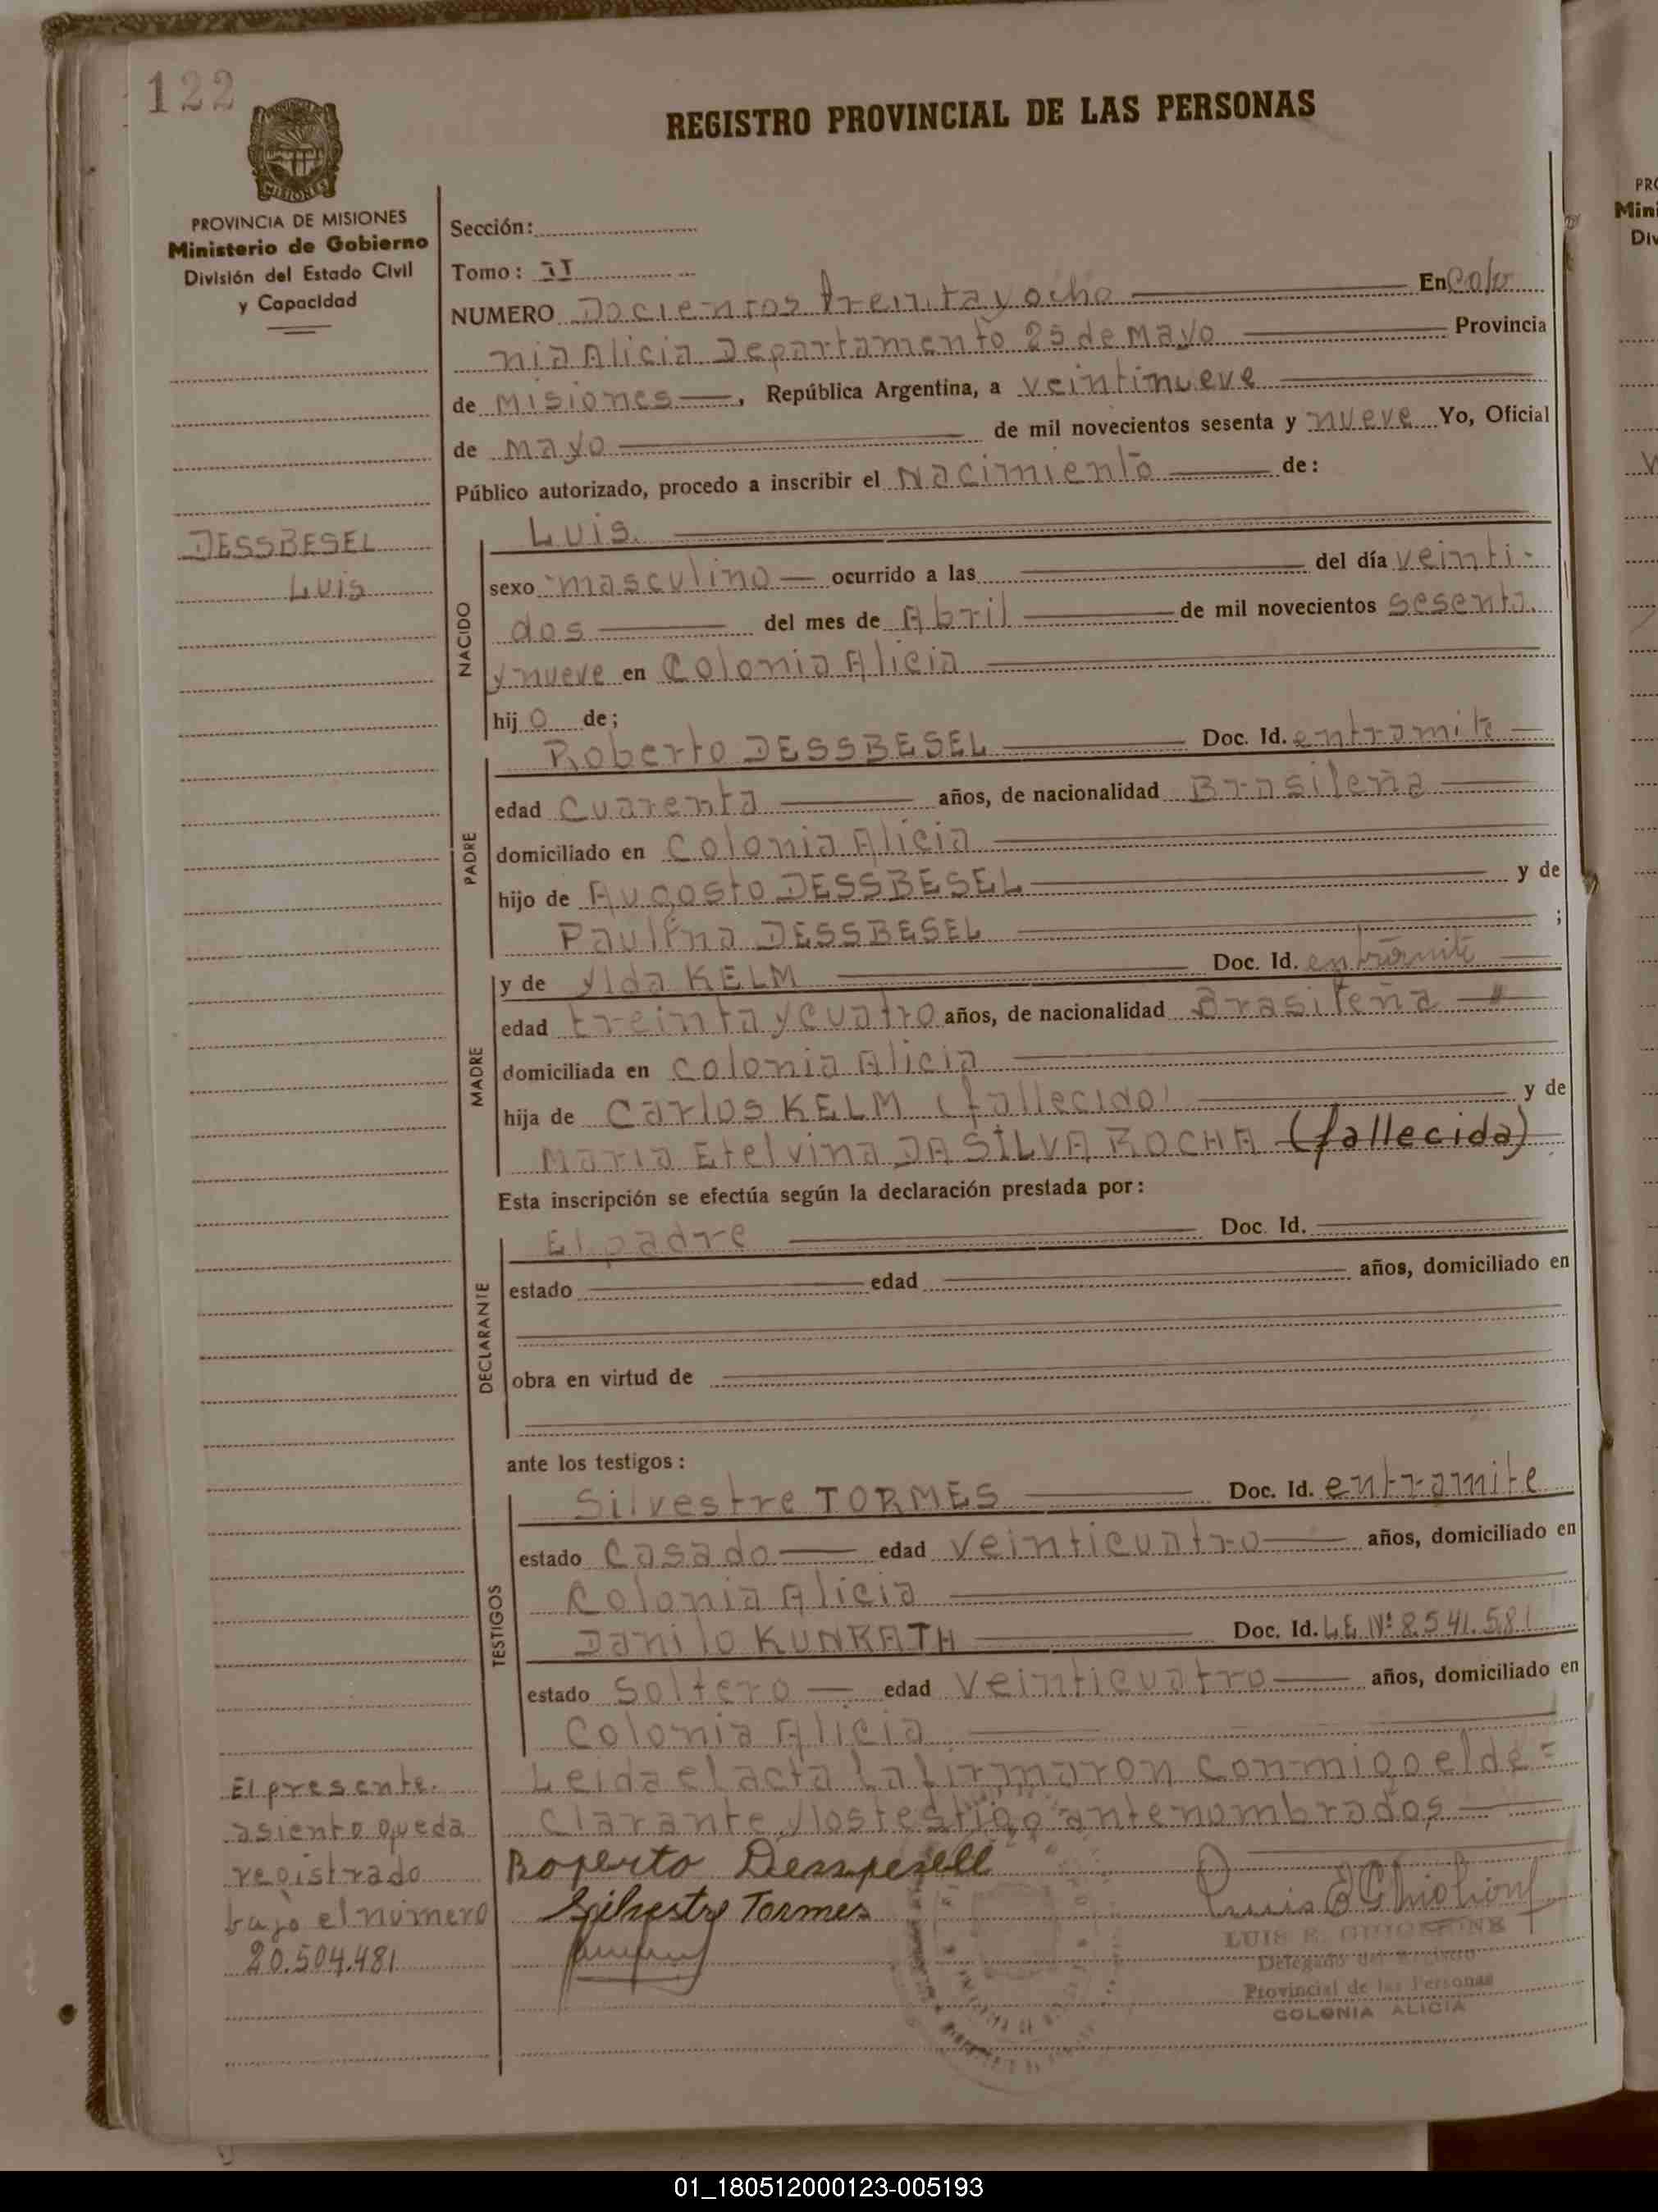 122
REGISTRO PROVINCIAL DE LAS PERSONAS
PROVINCIA DE MISIONES
Ministerio de Gobierno
División del Estado Civil
y Capacidad
DESSBESEL
Luis
Sección:
Tomo: II
NUMERO Docientos treinta y ocho En Colo
nia Alicia Departamento 25 de Mayo Provincia
de Misiones, República Argentina, a veintinueve
de mayo de mil novecientos sesenta y nueve Yo, Oficial
Público autorizado, procedo a inscribir el Nacimiento de:
NACIDO
Luis.
sexo masculino ocurrido a las del día veinti-
dos del mes de Abril de mil novecientos sesenta
y nueve en Colonia Alicia
hijo de;
PADRE
Roberto DESSBESEL Doc. Id. en tramite
edad Cuarenta años, de nacionalidad Brasileña
domiciliado en Colonia Alicia
hijo de Augosto DESSBESEL y de
Paulina DESSBESEL ;
MADRE
y de Ylda KELM Doc. Id. en trámite
edad treinta y cuatro años, de nacionalidad Brasileña
domiciliada en Colonia Alicia
hija de Carlos KELM (fallecido) y de
Maria Etelvina DA SILVA ROCHA (fallecida)
Esta inscripción se efectúa según la declaración prestada por:
DECLARANTE
El padre Doc. Id.
estado edad años, domiciliado en
obra en virtud de
ante los testigos:
TESTIGOS
Silvestre TORMES Doc. Id. en tramite
estado Casado edad veinticuatro años, domiciliado en
Colonia Alicia
Danilo KUNRATH Doc. Id. L.E. Nº 8.541.581
estado Soltero edad veinticuatro años, domiciliado en
Colonia Alicia
Leida el acta la firmaron conmigo el de=
clarante y los testigo antenombrados
El presente
asiento queda
registrado
bajo el número
20.504.481
Roperto Desspesell
Silvestre Tormes
LUIS E.
Delegado del Registro
Provincial de las Personas
COLONIA ALICIA
PRO
Mini
Div
01_180512000123-005193